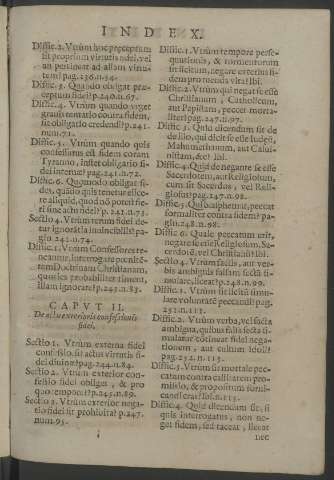 INDEX.
Diffic. 2. Vtrùm hoc præceptum
sit proprium virtutis fidei, vel
an pertineat ad aliam virtu-
tem? pag. 236. n. 54.
Diffic. 3. Quando obliget præ-
ceptum fidei? p. 240. n. 67.
Diffic. 4. Vtrùm quando vrget
grauis tentatio contra fidem,
sit obligatio credendi? p. 241.
num. 71.
Diffic. 5. Vtrùm quando quis
confessurus est fidem coram
Tyranno, instet obligatio fi-
dei internæ? pag. 241. n. 72.
Diffic. 6. Quomodo obliget fi-
des, quãdo quis tenetur elice-
re aliquid, quod nõ potest fie-
ri sine actu fidei? p. 241. n. 73.
Sectio 4. Vtrùm rerum fidei de-
tur ignorãtia inuincibilis? pa-
gin. 241. n. 74.
Diffic. 1. Vtrùm Confessores te-
neantur, interrogare pœnitẽ-
tem Doctrinam Christianam,
quoties probabiliter timent,
illam ignorare? p. 245. n. 83.
CAPVT II.
De actu exterioris confessionis
fidei.
Sectio 1. Vtrùm externa fidei
confessio, sit actus virtutis fi-
dei diuinæ? pag. 244. n. 84.
Sectio 2. Vtrùm exterior con-
fessio fidei obliget, & pro
quo tempore? p. 245. n. 89.
Sectio 3. Vtrùm exterior nega-
tio fidei sit prohibita? p. 247.
num. 95.
Diffic. 1. Vtrùm tempore perse-
quutionis, & tormentorum
sit licitum, negare exteriùs fi-
dem pro tuenda vita? ibi.
Diffic. 2. Vtrùm qui negat se esse
Christianum, Catholicum,
aut Papistam, peccet morta-
liter? pag. 247. n. 97.
Diffic. 3. Quid dicendum sit de
de illo, qui dicit se esse Iudæũ,
Mahumethanum, aut Calui-
nistam, &c? ibi.
Diffic. 4. Quid de negante se esse
Sacerdotem, aut Religiosum,
cum sit Sacerdos, vel Reli-
giosus? pag. 247. n. 98.
Diffic. 5. Quis blasphemet, peccat
formaliter contra fidem? pa-
gin. 248. n. 98.
Diffic. 6. Quale peccatum erit,
negare se esse Religiosum, Sa-
cerdotẽ, vel Christianũ? ibi.
Sectio 4. Vtrùm factis, aut ver-
bis ambiguis falsam sectã si-
mulare, liceat? p. 248. n. 99.
Diffic. 1. Vtrùm sit licitũ simu-
lare voluntatẽ peccandi? pag.
251. n. 113.
Diffic. 2. Vtrùm verba, vel facta
ambigua, quibus falsa secta si-
mulatur contineat fidei negatio-
nem, aut cultum Idoli?
pag. 252. n. 115.
Diffic. 3. Vtrùm sit mortale pec-
catum contra castitatem pro-
missio, & propositum forni-
candi erat? ibi. n. 115.
Diffic. 4. Quid dicendum sit, si
quis interrogatus, non ne-
get fidem, sed taceat, liceat
nec